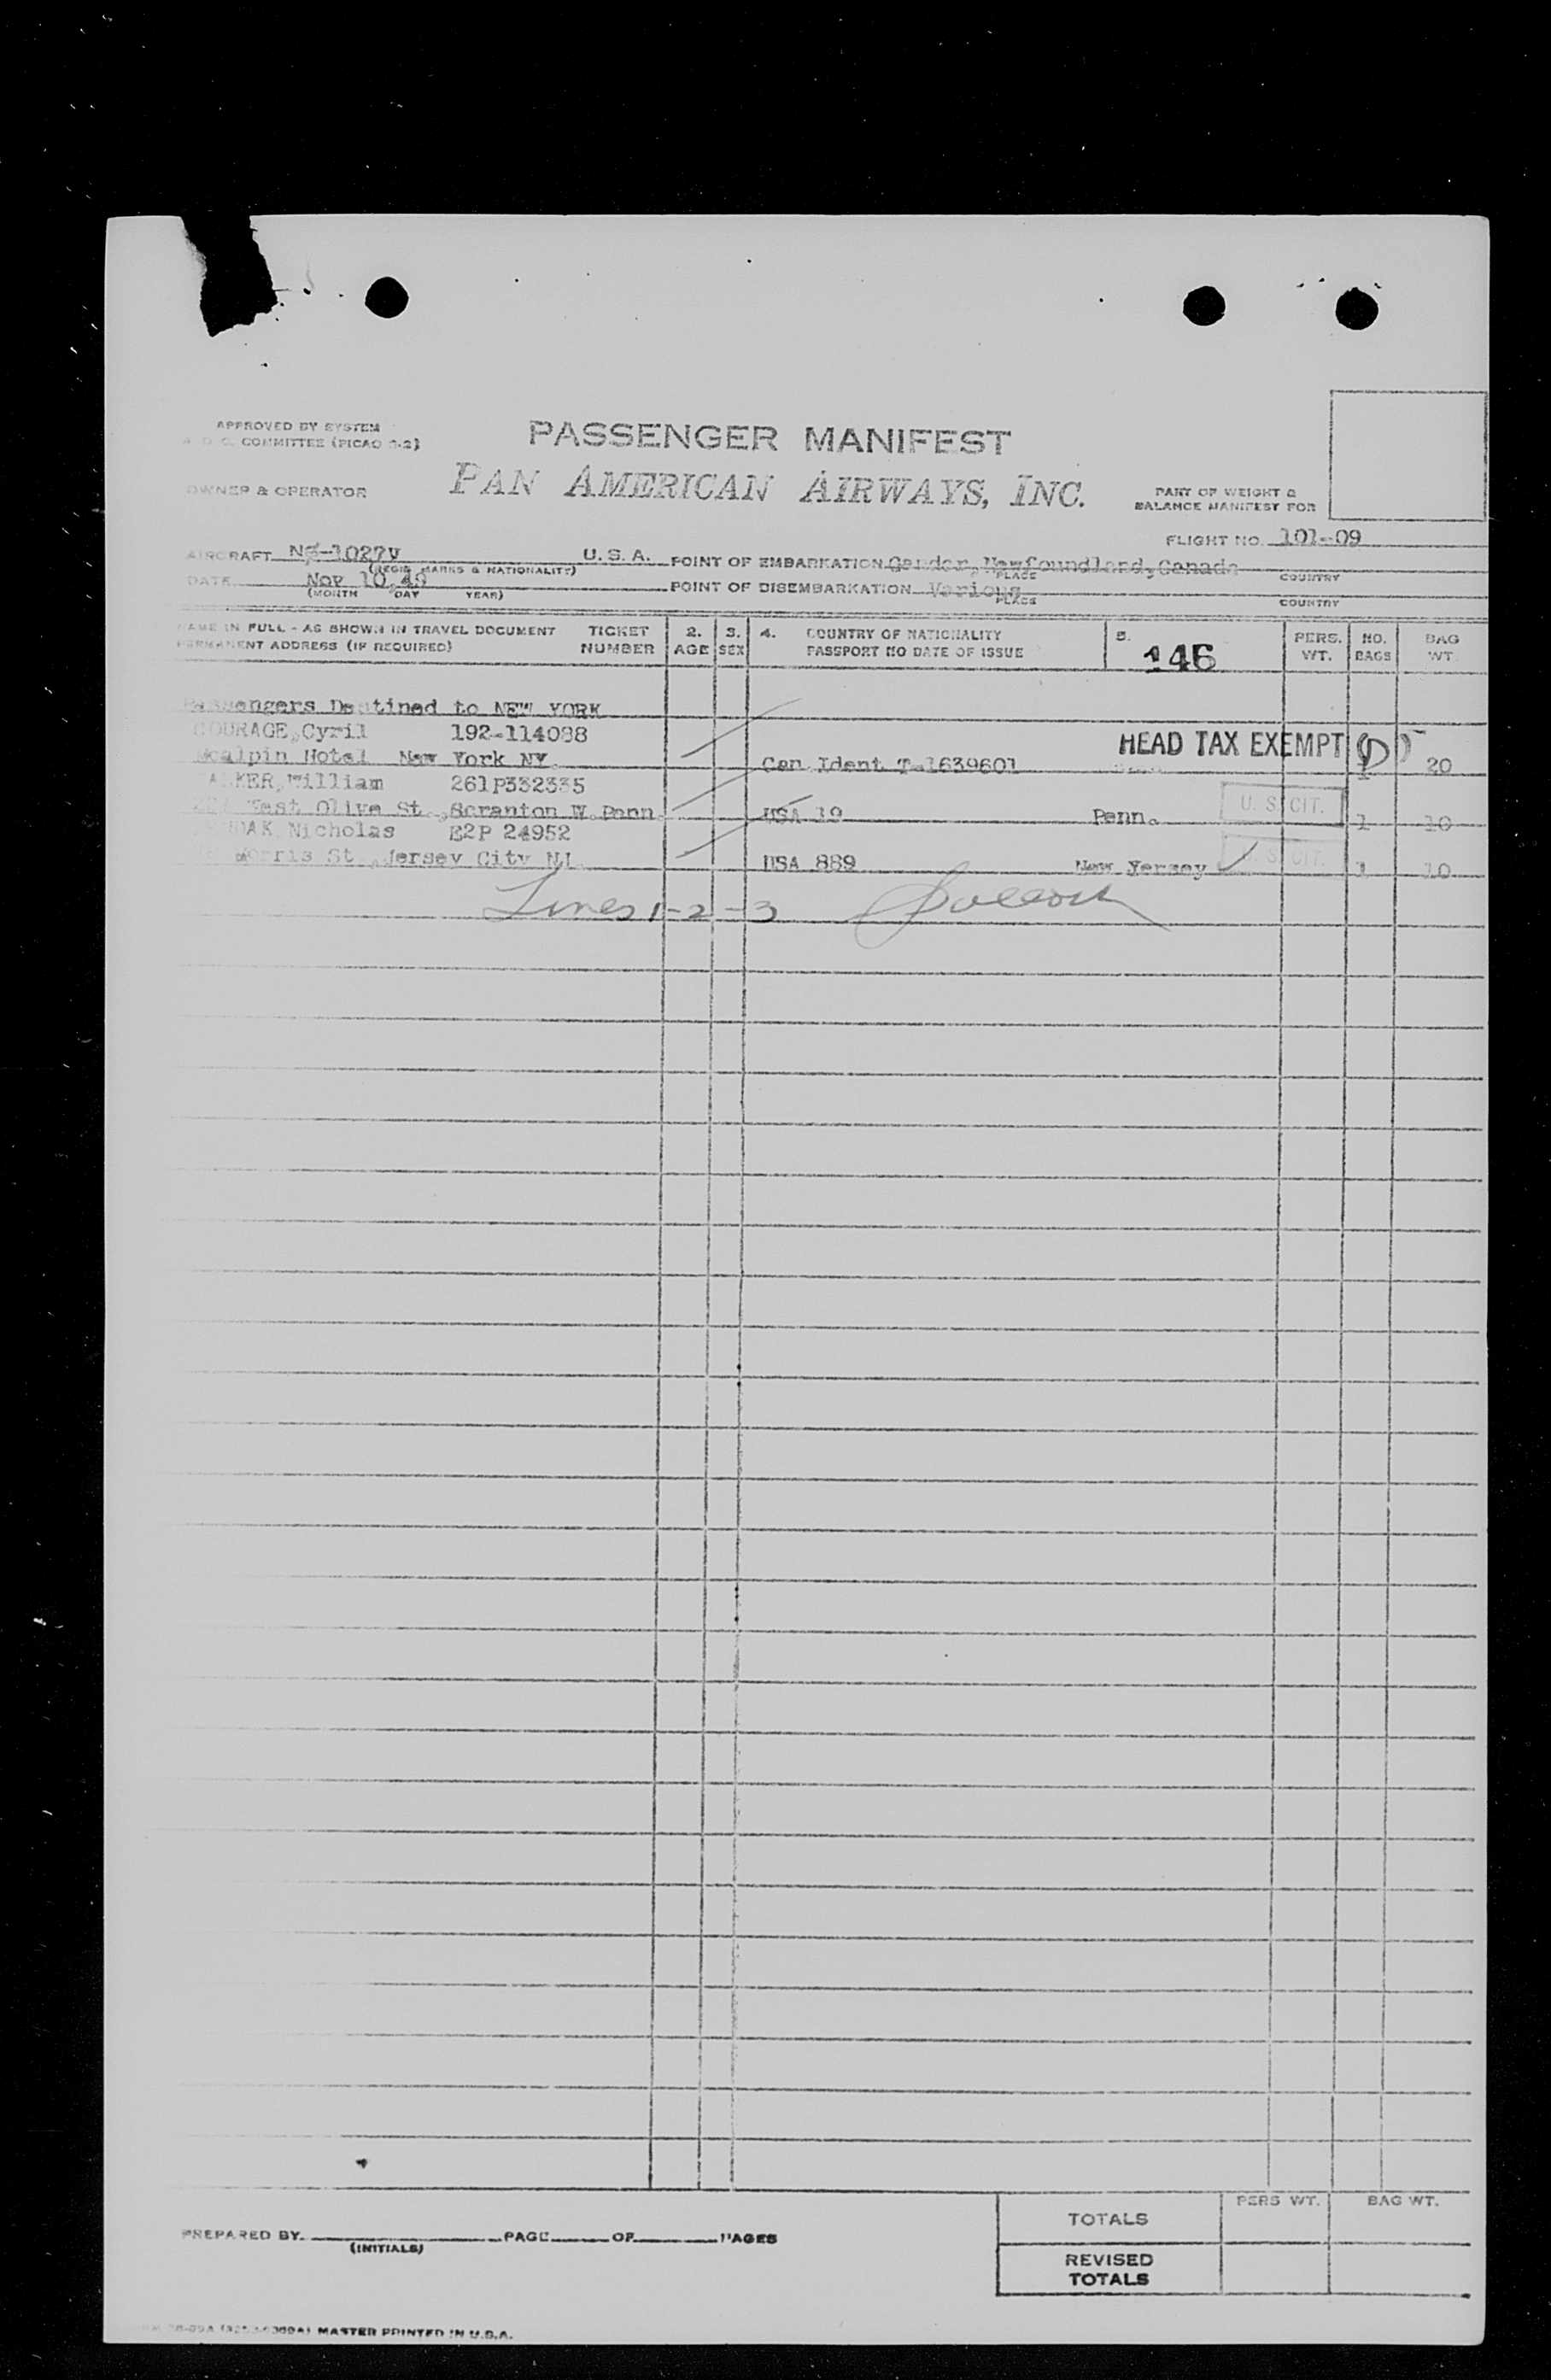 APPROVED BY SYSTEM
COMMITTEE (PICAO
PASSENGER MANIFEST
OWNER & OPERATOR
PAN AMERICAN AIRWAYS, INC.
PART OF WEIGHT &
BALANCE MANIFEST FOR
FLIGHT NO. 101-09
AIRCRAFT U.S.A. POINT OF EMBARKATION Gander, Newfoundland, Canada
(REGIS. MARKS & NATIONALITY) PLACE COUNTRY
DATE Nov 10, 49 POINT OF DISEMBARKATION Various
(MONTH DAY YEAR) PLACE COUNTRY
NAME IN FULL - AS SHOWN IN TRAVEL DOCUMENT TICKET 2. 3. 4. COUNTRY OF NATIONALITY 5. PERS. NO. BAG
PERMANENT ADDRESS (IF REQUIRED) NUMBER AGE SEX PASSPORT NO DATE OF ISSUE 146 WT. BAGS WT.
Passengers Destined to NEW YORK
COURAGE, Cyril 192-114088
HEAD TAX EXEMPT
Mcalpin Hotel New York NY Can Ident T-1639601 20
William 261P332335
West Olive St., Scranton W. Penn. USA 19 Penn. U. S. CIT. 1 10
Nicholas E2P 24952
Morris St. Jersey City NJ. USA 889 New Jersey U. S. CIT. 1 10
Lines 1-2-3
PERS WT. BAG WT.
TOTALS
PREPARED BY PAGE OF PAGES
(INITIALS)
REVISED
TOTALS
MASTER PRINTED IN U.S.A.